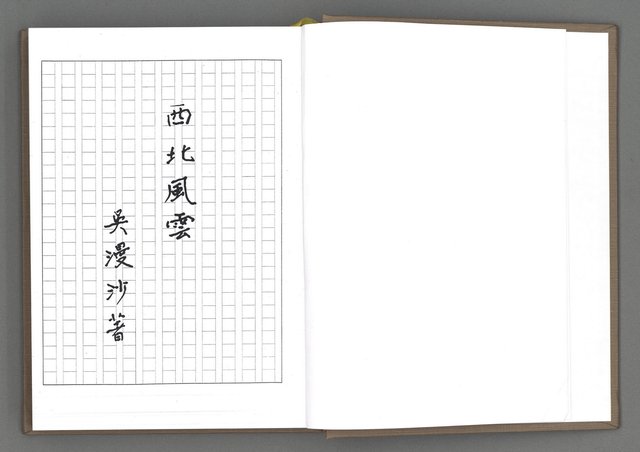 西北風雲
吳漫沙著